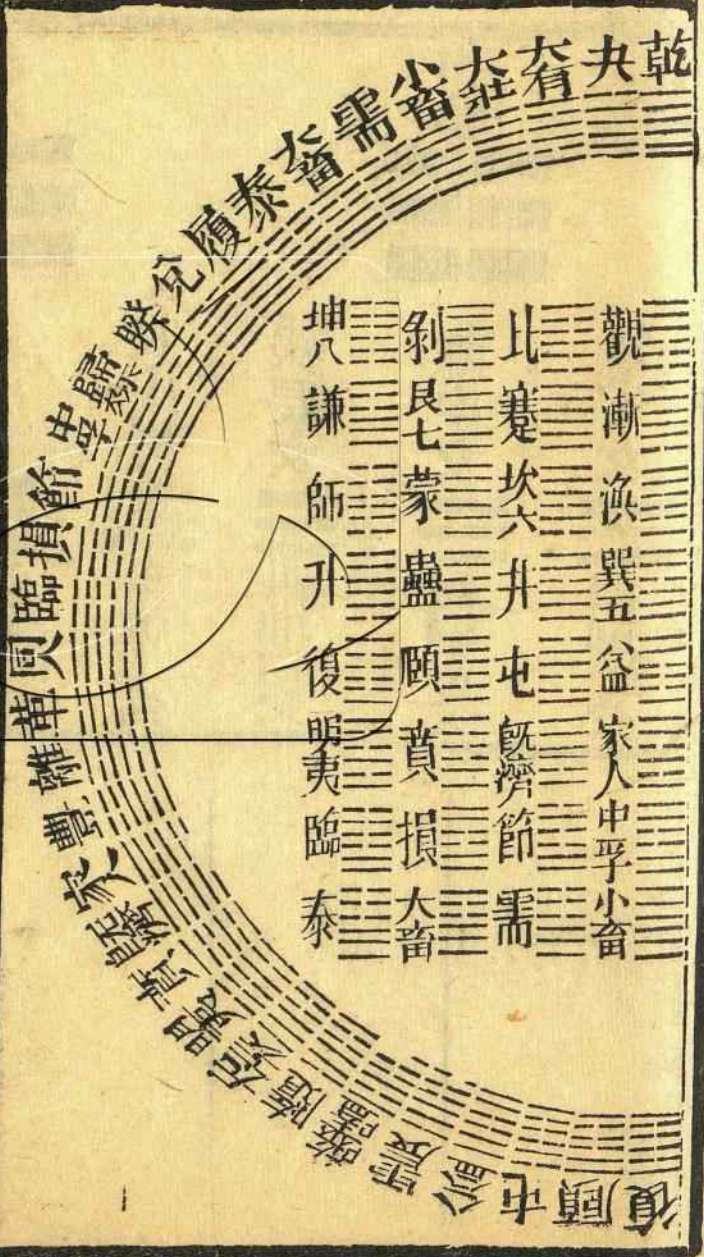 乾夬大有大壯小畜需大畜泰履兌睽歸妹中孚節損臨同人革離豐家人既濟賁明夷无妄隨噬嗑震益屯頤復
觀漸渙巽五益家人中孚小畜
比蹇坎六井屯既濟節需
剝艮七蒙蠱頤賁損大畜
坤八謙師升復明夷臨泰